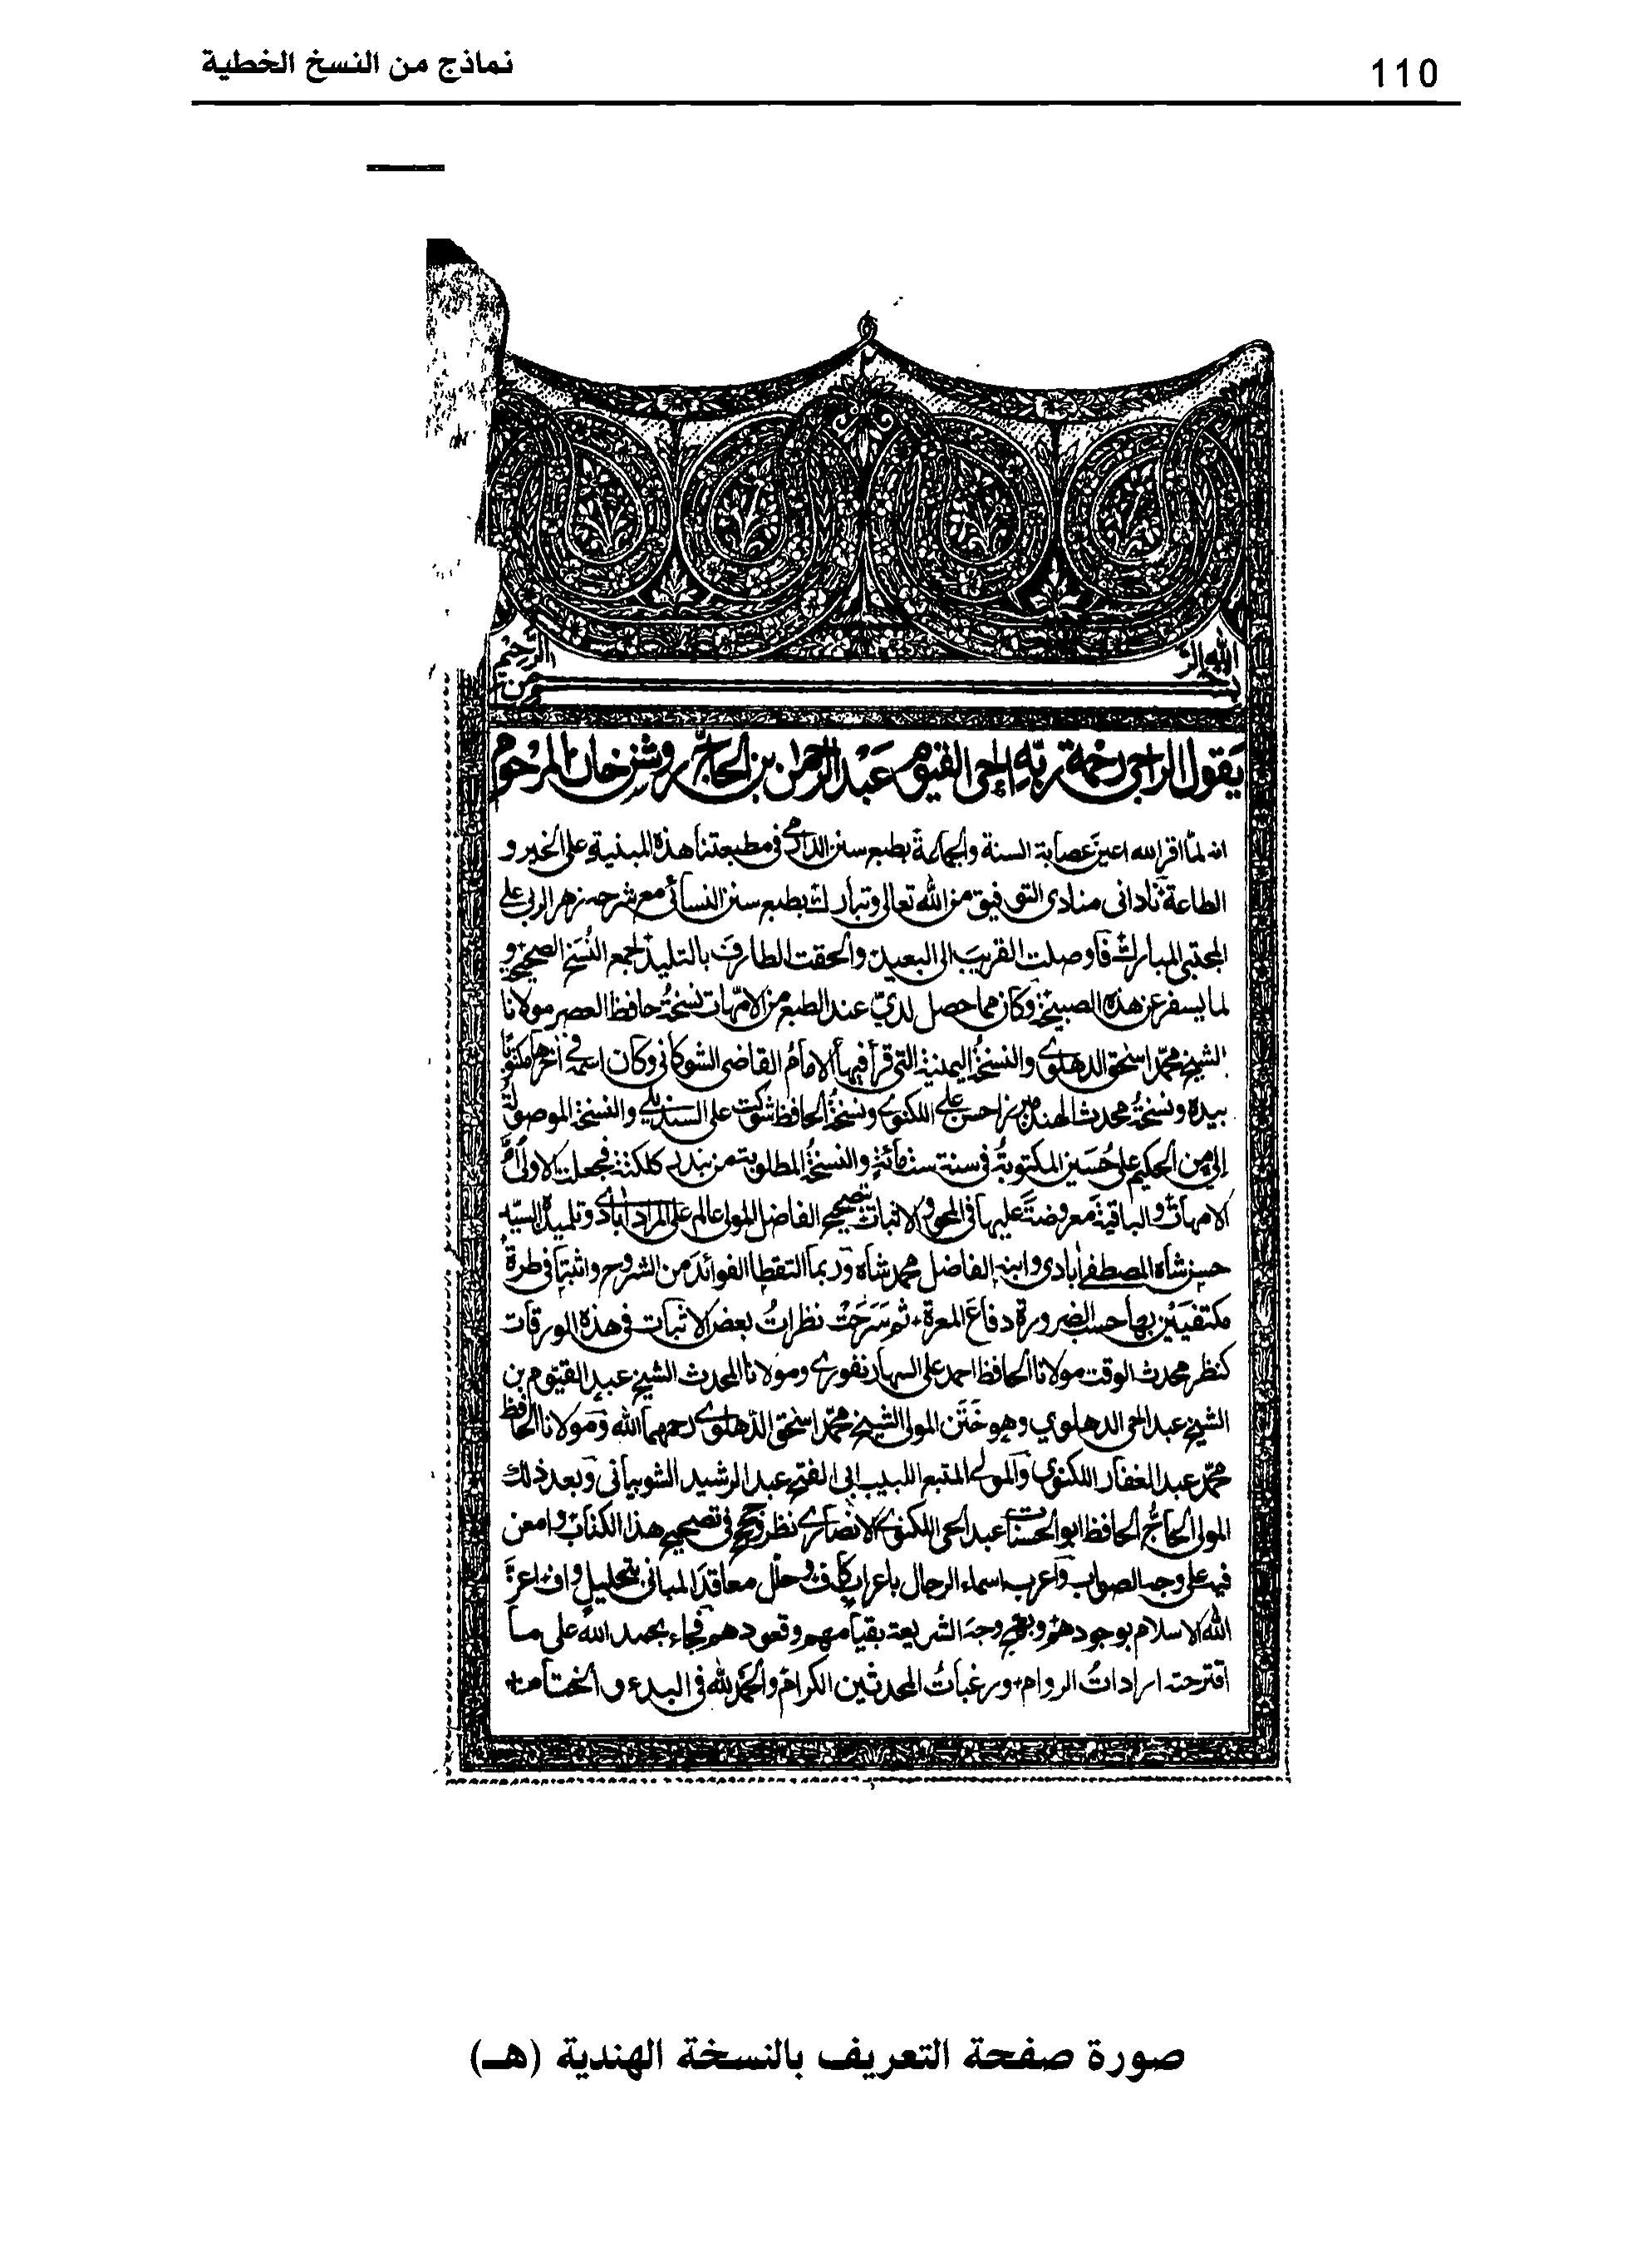 نماذج من النسخ الخطية
110
بسم الله الرحمن الرحيم
يقول الراجي رحمة ربه الحي القيوم عبد الرحمن بن الحاج روشن خان المرحوم
انه لما اقر الله اعين عصابة السنة والجماعة بطبع سنن الدارمي في مطبعتنا هذه المبنية على الخير و
الطاعة نادانى منادى التوفيق من الله تعالى وتبارك بطبع سنن النسائي مع شرحه زهر الربى على
المجتبى المبارك فاوصلت القريب الى البعيد والحقت الطارف بالتليد لجمع النسخ الصحيحة و
لما يسفر عن هذه الصبيحة وكان مما حصل لدي عند الطبع من الامهات نسخة حافظ العصر مولانا
الشيخ محمد اسحق الدهلوي والنسخة اليمنية التي قرأ فيها الامام القاضى الشوكانى وكان اسمه في اخرها مكتوبا
بيده ونسخة محدث الهند ميرزا حسن على اللكنوي ونسخة الحافظ شوكت على السنديلي والنسخة الموصولة
الي من الحكيم على حسين المكتوبة في سنة ستمائة والنسخة المطلوبة من بندر كلكتة فجعلت الاولى ام
الامهات والباقية معروضة عليها في المحو والاثبات بتصحيح الفاضل المولى عالم على المرادابادي وتلميذه السيد
حسن شاه المصطفے ابادى وابنه الفاضل محمد شاه وربما التقطا الفوائد من الشروح واثبتا في طرة
مكتفيين بها حسب الضرورة دفاع المعرة ثم سرحت نظرات بعض الاثبات في هذه الورقات
كنظر محدث الوقت مولانا الحافظ احمد على السهارنفوري ومولانا المحدث الشيخ عبد القيوم بن
الشيخ عبد الحى الدهلوي وهو ختن المولى الشيخ محمد اسحق الدهلوي رحمهما الله ومولانا الحافظ
محمد عبد الغفار اللكنوي والمولے المتبع اللبيب ابى الفتح عبد الرشيد الشوبيانى وبعد ذلك
المولى الحاج الحافظ ابو الحسنات عبد الحى اللكنوي الانصاري نظر في تصحيح هذا الكتاب وامعن
فيه على وجه الصواب واعرب اسماء الرجال باعراب كاف وحلل معاقد المبانى بتحليل واف اعز
الله الاسلام بوجودهم وجه الشريعة بقيامهم وقعودهم فجاء بحمد الله على ما
اقترحته ارادات الروام ورغبات المحدثين الكرام والحمد لله في البدء والختام
صورة صفحة التعريف بالنسخة الهندية (هـ)